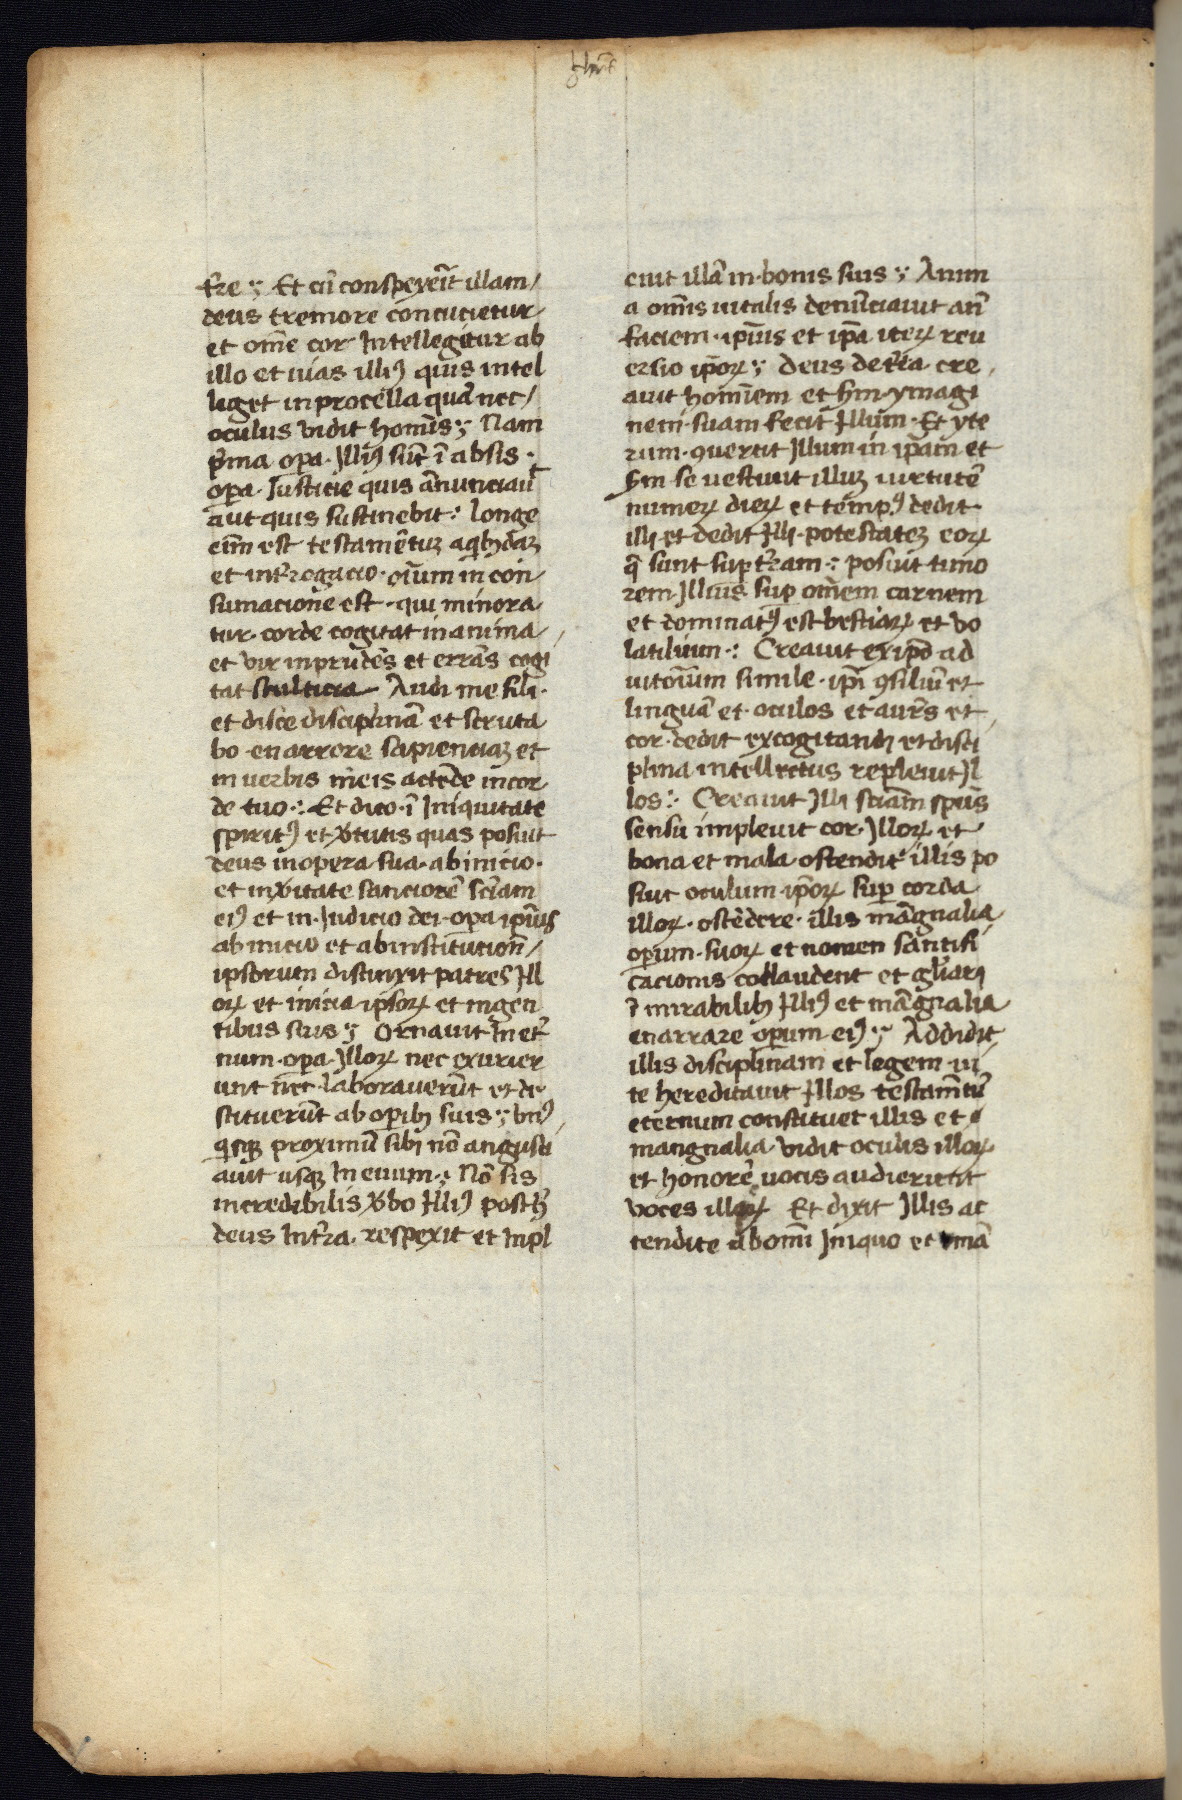 tre Et cũ conspexer̃it illam
deus tremore concucietur
et om̃e cor Intellegitur ab
illo et uias illiꝰ quis intel
liget in procella quã nec
oculus vidit homis̃ Nam
p̃ma opa · Illiꝰ sũt ĩ absĩs ·
opa · Iusticie quis ãnunciau͛
aut quis sustinebit : longe
eĩm est testamẽtuꝫ a qͥbꝰdaꝫ
et int̃rogacio · oĩum in con
sumacione est · qui minora
tur · corde cogitat inania
et vir inprudẽs et errãs cogi
tat stulticia Audi me fili ·
et disce disciplinã et scruta
bo · enarrere sapienciaꝫ et
in uerbis meis actẽde in cor
de tuo : Et dico · ĩ Iniquitate
spiritꝰ et v̾tutis quas posuit
deus in opera sua · ab inicio ·
et in v̾itate sanctorẽ sc̃iam
eiꝰ et in · Iudicio dei · opa ip̃ius
ab inicio et ab institucion̄
ipsorum distinxit partes Ill
oꝝ et inicia ipsoꝝ et in gen
tibus suis Ornauit In et̾
num · opa · Illoꝝ nec exurier
unt nec · laborauerũt et de
stituerũt ab opibꝰ suis vnꝰ
qͥsqꝫ proximũ sibi nõ angusti
auit usqꝫ In euum · Nõ sis
incredibilis v̾bo Illiꝰ post h̾
deus In t̾ra · respexit et Inpl
euit illã in · bonis suis Anim
a om̃is uitalis denũciauit an̄
faciem · ip̃ius et ip̃a iteꝝ reu
ersio ip̃oꝝ deus de t̾ra cre
auit hominem et s̃m · ymagi
nem · suam fecit Illum · Et yte
rum · ꝯuertit Illum in ip̃am et
s̃m se uestiuit illuꝫ uirtutẽ
numeꝝ dieꝝ et tempꝰ dedit ·
illi et dedit Illi · potestateꝫ eoꝝ
q̃ sunt sup t̾ram : posuit timo
rem · Illius sup om̃em carnem
et dominatꝰ est bestiaꝝ et vo
latilium : Creauit ex ip̃o ad
iutorium simile · ip̃i ꝯsiliũ et
linguã et · oculos et aurs̃ et
cor · dedit excogitandi et disci
plina intellectus repleuit Il
los : Creauit Illi sciãm sp̃us
sensu impleuit cor · Illoꝝ et
bona et mala · ostendit illis po
suit oculum · ip̃oꝝ sup corda
illoꝝ · ostẽdere · illis mãgnalia
opum · suoꝝ et nomen santifi
cacionis collaudent et gl̃iari
ĩ mirabilibꝰ Illiꝰ et mãgnalia
enarrare opum · eiꝰ Addidit
illis disciplinam et legem · ui
te hereditauit Illos testam̃tũ
eternum constituet illis et
mangnalia · vidit oculis illoꝝ
et honorẽ uocis audierunt
voces illoꝝ Et dixit Illis ac
tendite ab om̃i Iniquo et mã